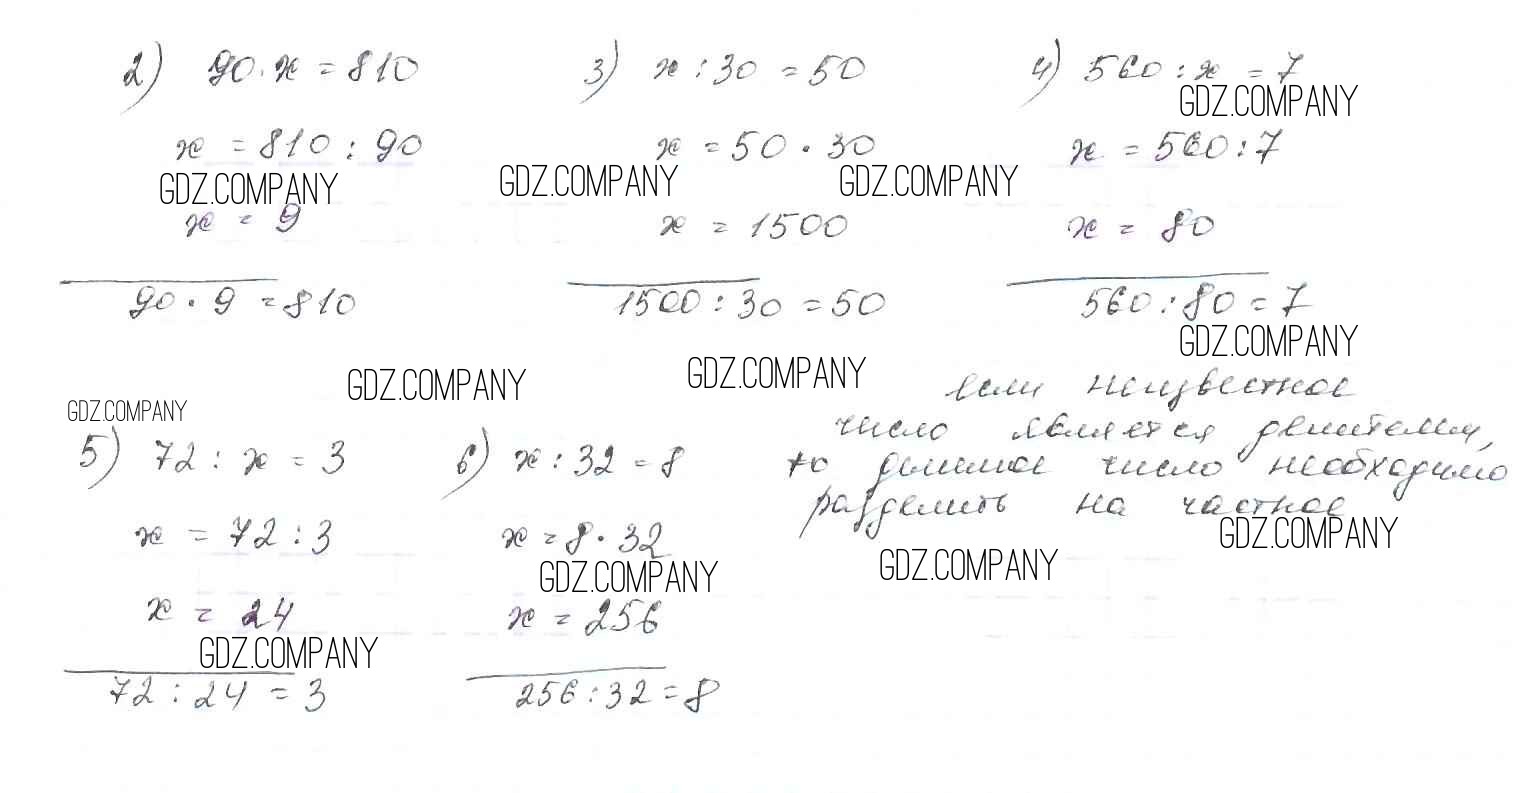 2) 90·x = 810
x = 810 : 90
GDZ.COMPANY
x = 9
90 · 9 = 810
3) x : 30 = 50
x = 50 · 30
GDZ.COMPANY
GDZ.COMPANY
x = 1500
1500 : 30 = 50
4) 560 : x = 7
GDZ.COMPANY
x = 560 : 7
x = 80
560 : 80 = 7
GDZ.COMPANY
GDZ.COMPANY
GDZ.COMPANY
GDZ.COMPANY
5) 72 : x = 3
x = 72 : 3
x = 24
GDZ.COMPANY
72 : 24 = 3
6) x : 32 = 8
x = 8 · 32
GDZ.COMPANY
x = 256
256 : 32 = 8
если неизвестное
число является делителем,
то делимое число необходимо
разделить на частное
GDZ.COMPANY
GDZ.COMPANY